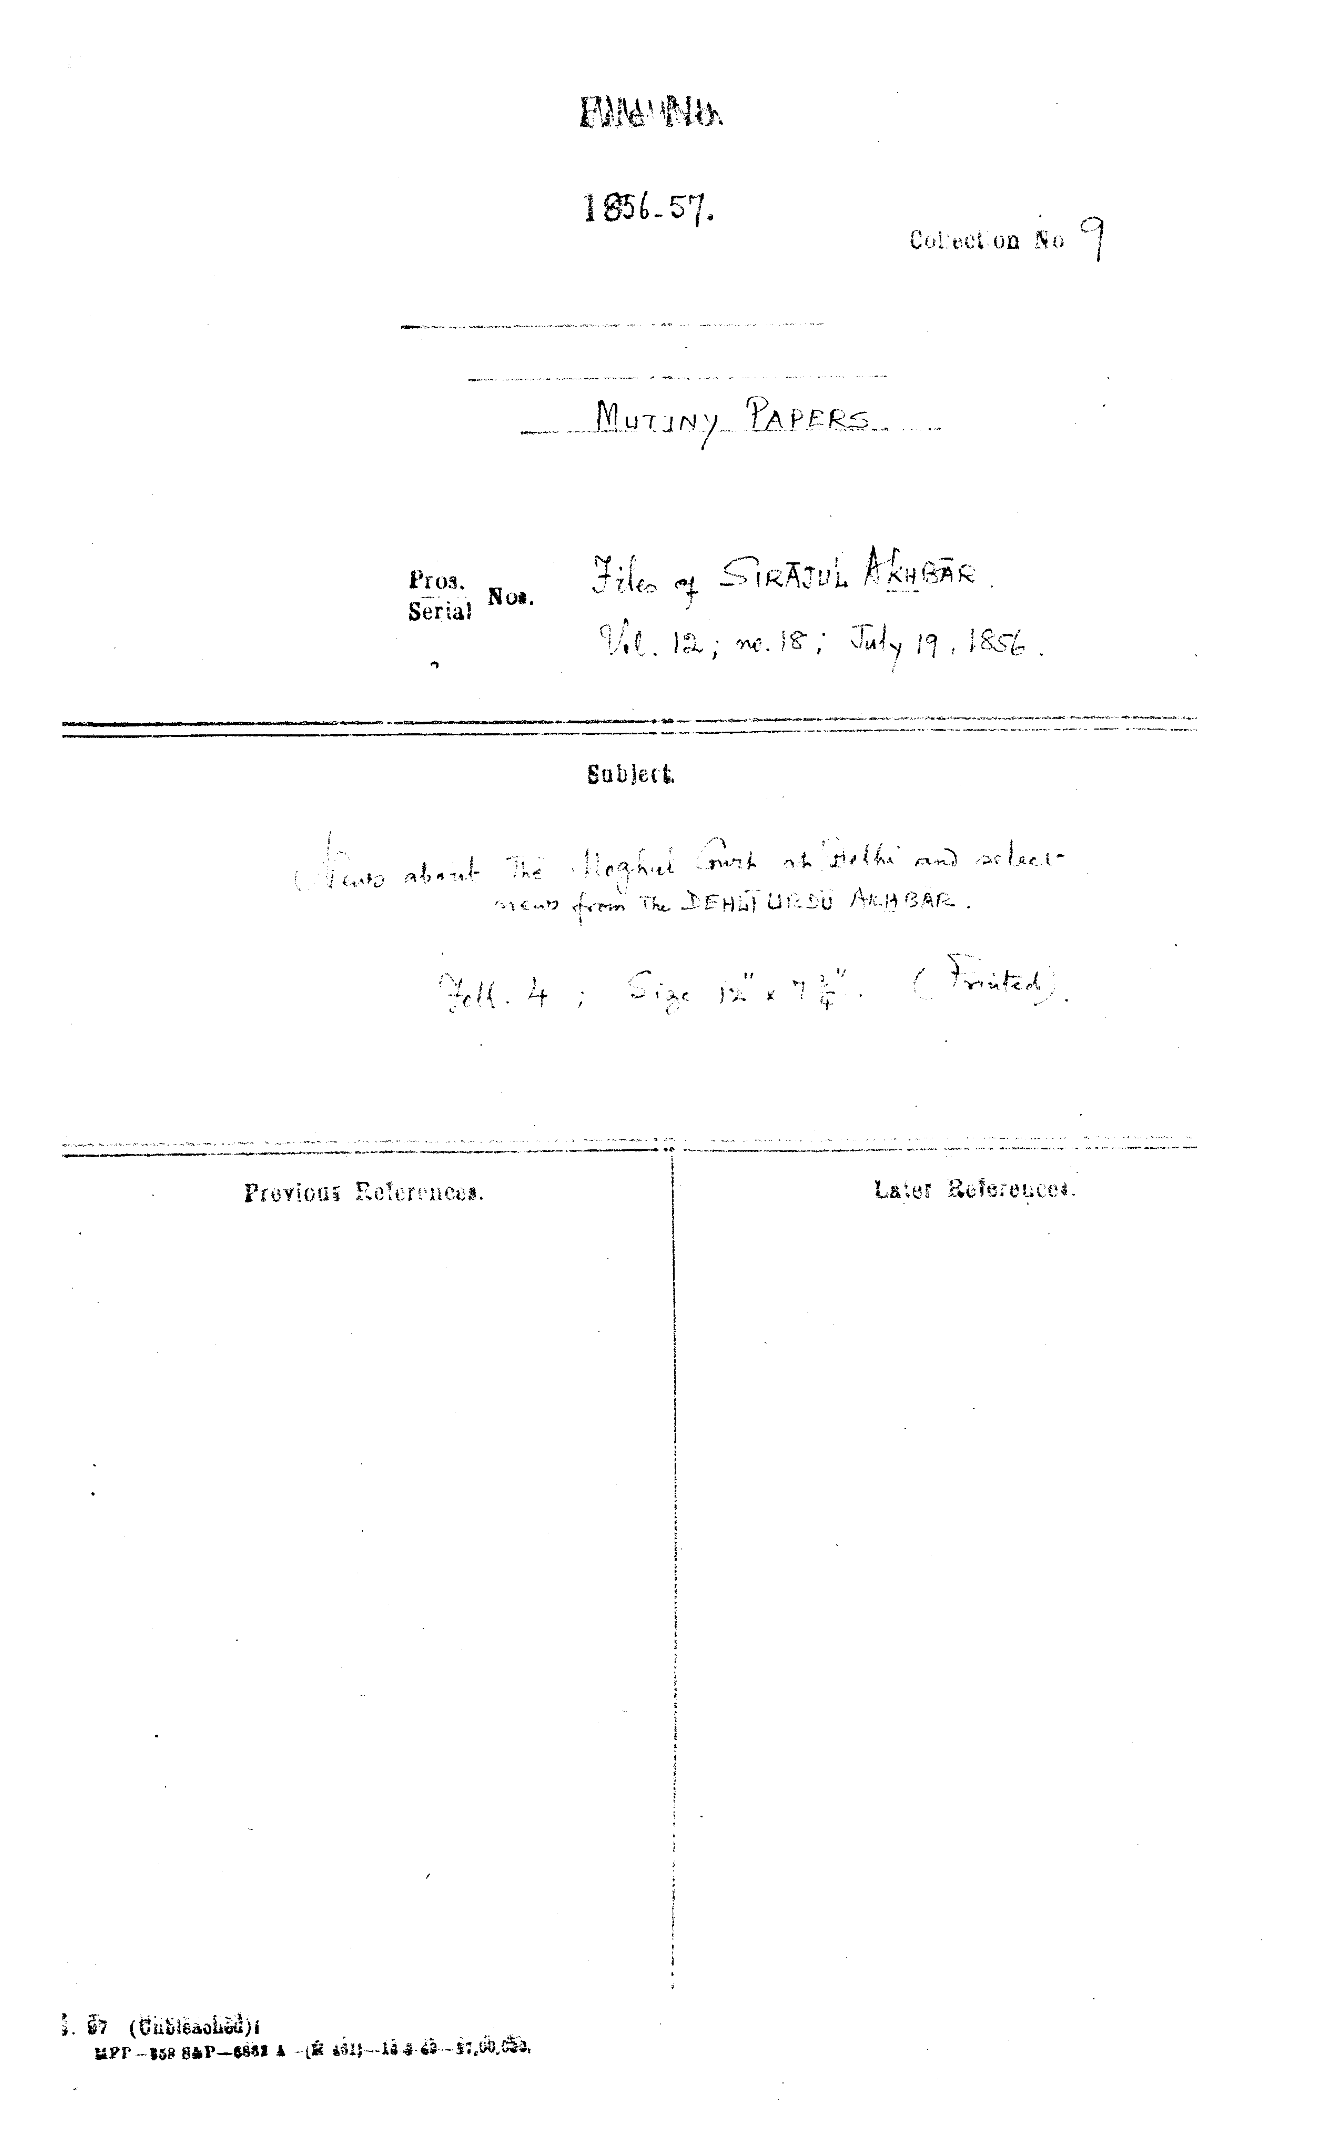 1856-57.
Collection No 9
MUTINY PAPERS
Pros.
Serial Nos.
Files of SIRĀJUL AKHBĀR.
Vol. 12; no. 18; July 19, 1856.
Subject.
News about the Moghul Court at Delhi and select
news from the DEHLĪ URDŪ AKHBAR.
Foll. 4 ; Size 12" x 7 3/4". (Printed).
Previous References.
Later References.
(Unbleached)